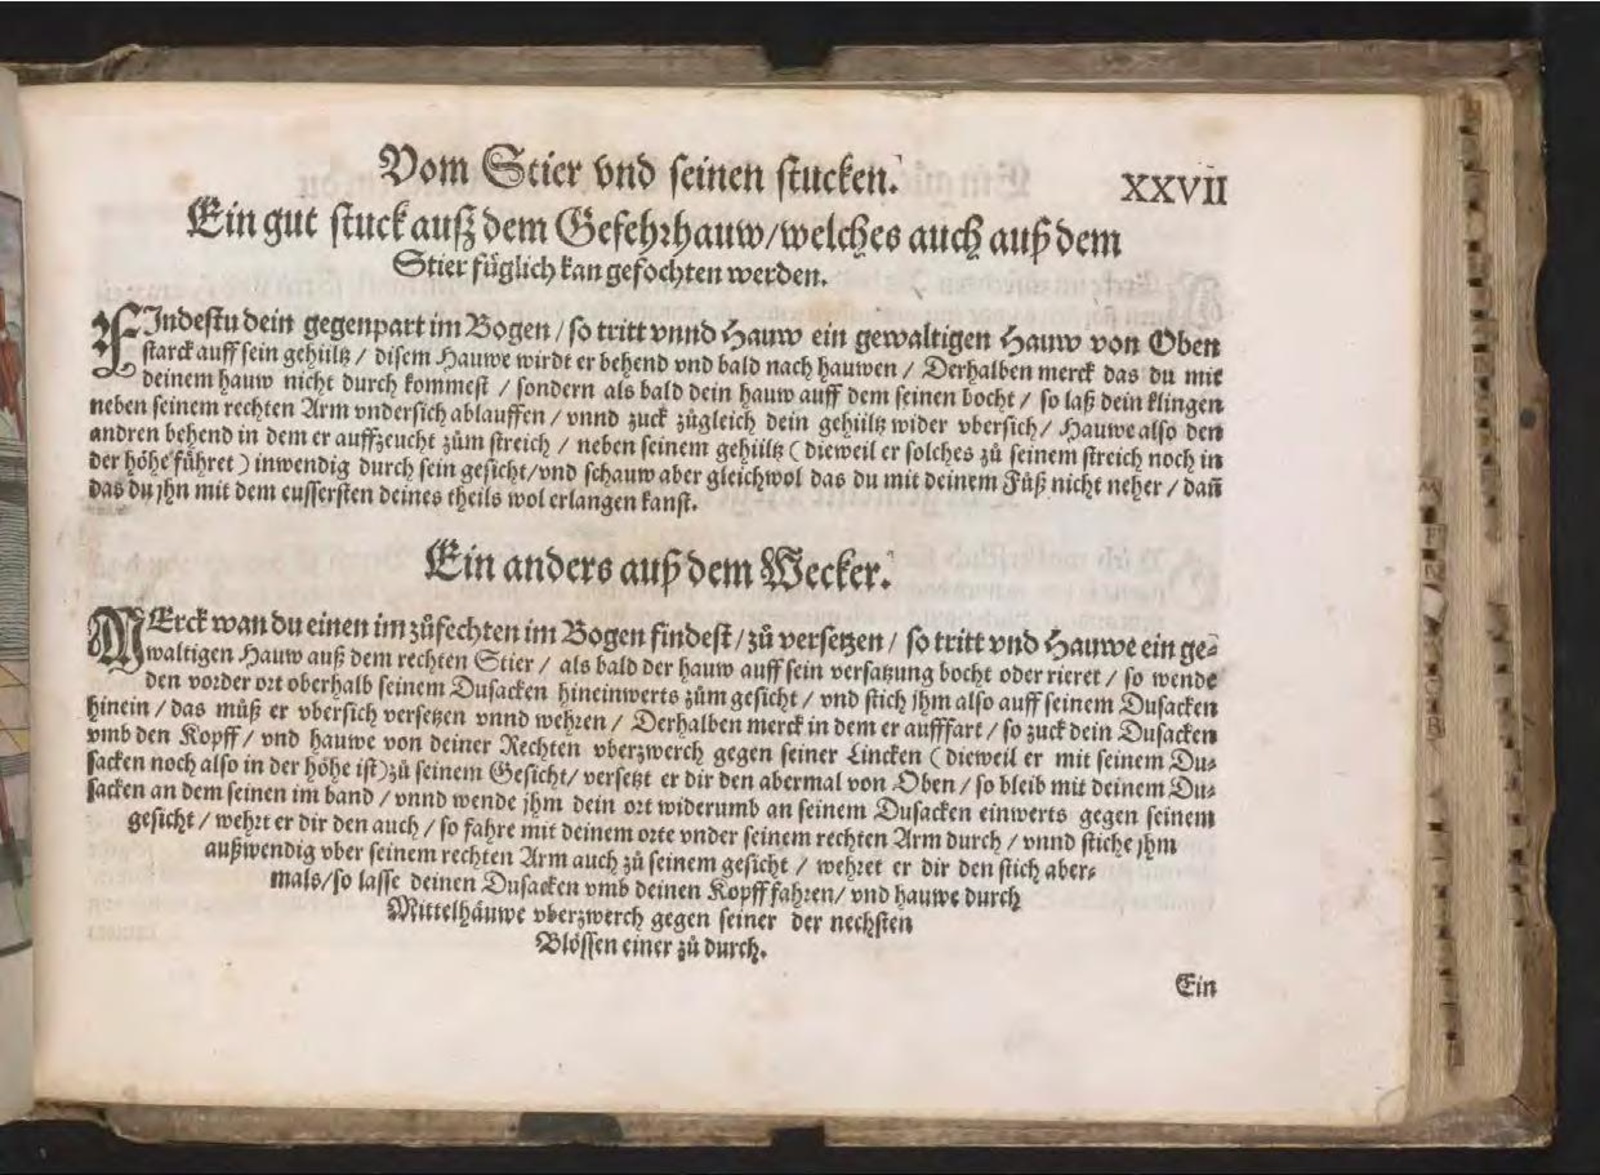 Vom Stier vnd seinen stucken.
XXVII
Ein gut stuck auß dem Gefehrhauw/welches auch auß dem
Stier füglich kan gefochten werden.
FIndestu dein gegenpart im Bogen / so tritt vnnd Hauw ein gewaltigen Hauw von Oben
starck auff sein gehiltz / disem Hauwe wirdt er behend vnd bald nach hauwen / Derhalben merck das du mit
deinem hauw nicht durch kommest / sondern als bald dein hauw auff dem seinen bocht / so laß dein klingen
neben seinem rechten Arm vndersich ablauffen / vnnd zuck zůgleich dein gehiltz wider vbersich / Hauwe also den
andren behend in dem er auffzeucht zům streich / neben seinem gehiltz ( dieweil er solches zů seinem streich noch in
der höhe fůhret ) inwendig durch sein gesicht/vnd schauw aber gleichwol das du mit deinem Fůß nicht neher / dañ
das du jhn mit dem eussersten deines theils wol erlangen kanst.
Ein anders auß dem Wecker.
MErck wan du einen im zůfechten im Bogen findest / zů versetzen / so tritt vnd Hauwe ein ge⸗
waltigen Hauw auß dem rechten Stier / als bald der hauw auff sein versatzung bocht oder rieret / so wende
den vorder ort oberhalb seinem Dusacken hineinwerts zům gesicht / vnd stich jhm also auff seinem Dusacken
hinein / das můß er vbersich versetzen vnnd wehren / Derhalben merck in dem er aufffart / so zuck dein Dusacken
vmb den Kopff / vnd hauwe von deiner Rechten vberzwerch gegen seiner Lincken ( dieweil er mit seinem Du⸗
sacken noch also in der höhe ist) zů seinem Gesicht/ versetzt er dir den abermal von Oben / so bleib mit deinem Du⸗
sacken an dem seinen im band / vnnd wende jhm dein ort widerumb an seinem Dusacken einwerts gegen seinem
gesicht / wehrt er dir den auch / so fahre mit deinem orte vnder seinem rechten Arm durch / vnnd stiche jhm
außwendig vber seinem rechten Arm auch zů seinem gesicht / wehret er dir den stich aber⸗
mals/so lasse deinen Dusacken vmb deinen Kopff fahren/ vnd hauwe durch
Mittelhäuwe vberzwerch gegen seiner der nechsten
Blössen einer zů durch.
Ein